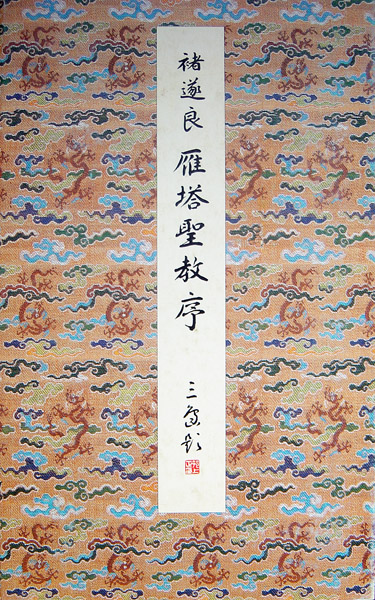 褚遂良 雁塔聖教序 三